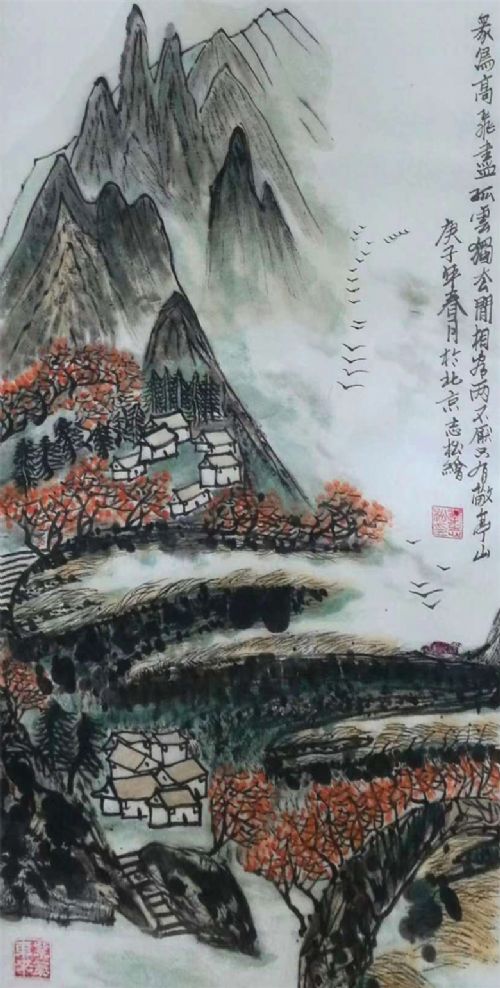 衆鳥高飛盡孤雲獨去閒相看两不厭只有敬亭山
庚子年春月於北京志松繪